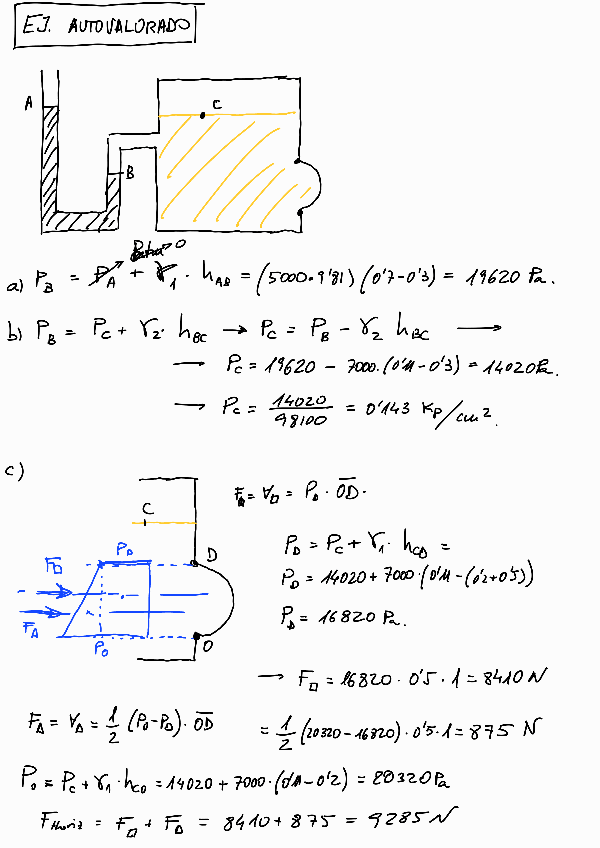 EJ. AUTOVALORADO
A
B
C
Patm → 0
a) P_B = P_A + γ_1 · h_AB = (5000·9'81)(0'7-0'3) = 19620 Pa.
b) P_B = P_C + γ_2 · h_BC → P_C = P_B - γ_2 h_BC →
→ P_C = 19620 - 7000·(1'1-0'3) = 14020 Pa.
→ P_C = 14020/98100 = 0'143 Kp/cm2.
c)
C
P_D
D
F_□
F_Δ
P_O
O
F_□ = ∀_□ = P_D · OD.
P_D = P_C + γ_1 · h_CD =
P_D = 14020 + 7000·(1'1-(0'2+0'5))
P_D = 16820 Pa.
→ F_□ = 16820 · 0'5 · 1 = 8410 N
F_Δ = ∀_Δ = 1/2 (P_O-P_D) · OD = 1/2 (20320-16820)·0'5·1 = 875 N
P_O = P_C + γ_1 · h_CO = 14020 + 7000·(1'1-0'2) = 20320 Pa
F_Horiz = F_□ + F_Δ = 8410 + 875 = 9285 N